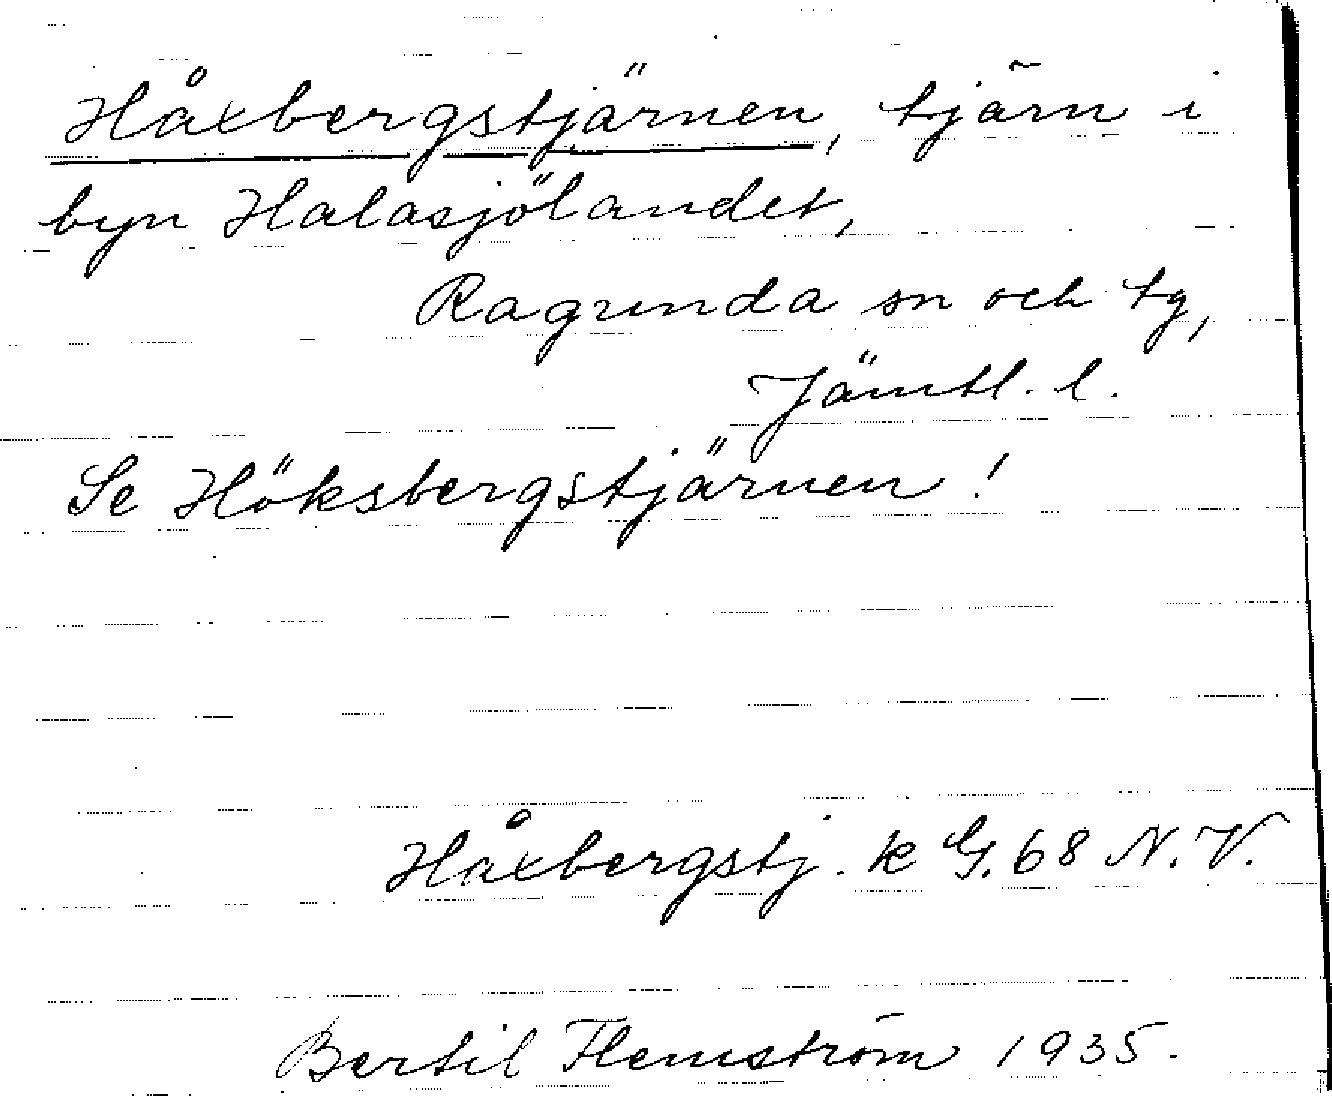 Håxbergstjärnen, tjärn i
byn Halasjölandet,
Ragunda sn och tg,
Jämtl. l.
Se Höksbergstjärnen!
Håxbergstj. k G. 68 N.V.
Bertil Flemström 1935.